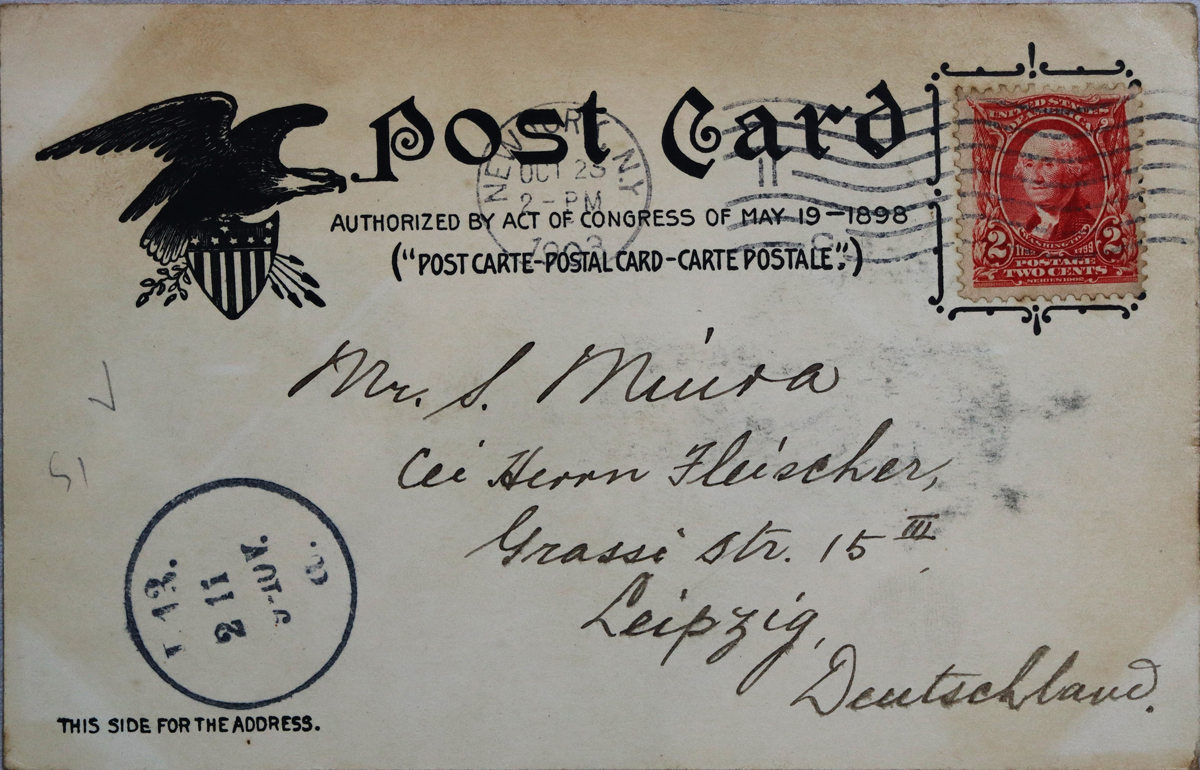 Post Card
NEW YORK, N.Y.
OCT 23
2-PM
1903
AUTHORIZED BY ACT OF CONGRESS OF MAY 19-1898
("POST CARTE-POSTAL CARD-CARTE POSTALE".)
UNITED STATES OF AMERICA
WASHINGTON
2 2
1732 1799
POSTAGE
TWO CENTS
SERIES 1902
Mr. S. Miura
bei Herrn Fleischer,
Grassi Str. 15 III
Leipzig,
Deutschland.
13.
2 11
THIS SIDE FOR THE ADDRESS.